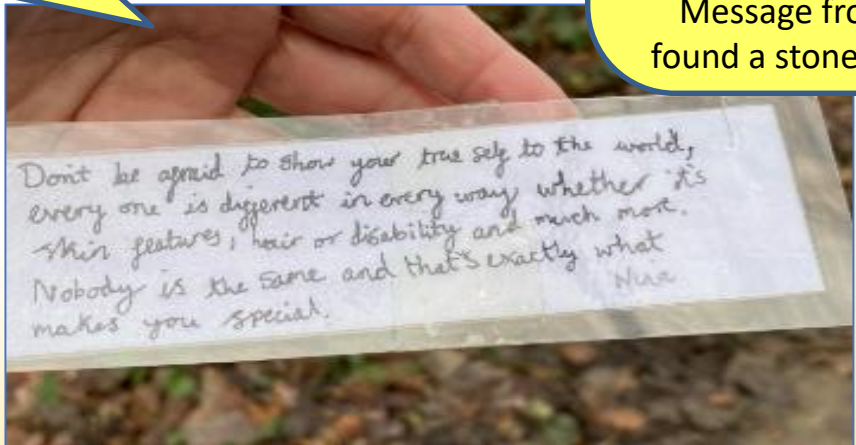 Message fro
found a stone
Dont be afraid to show your true self to the world,
every one is different in every way whether it's
skin features, hair or disability and much more.
Nobody is the same and that's exactly what
makes you special.